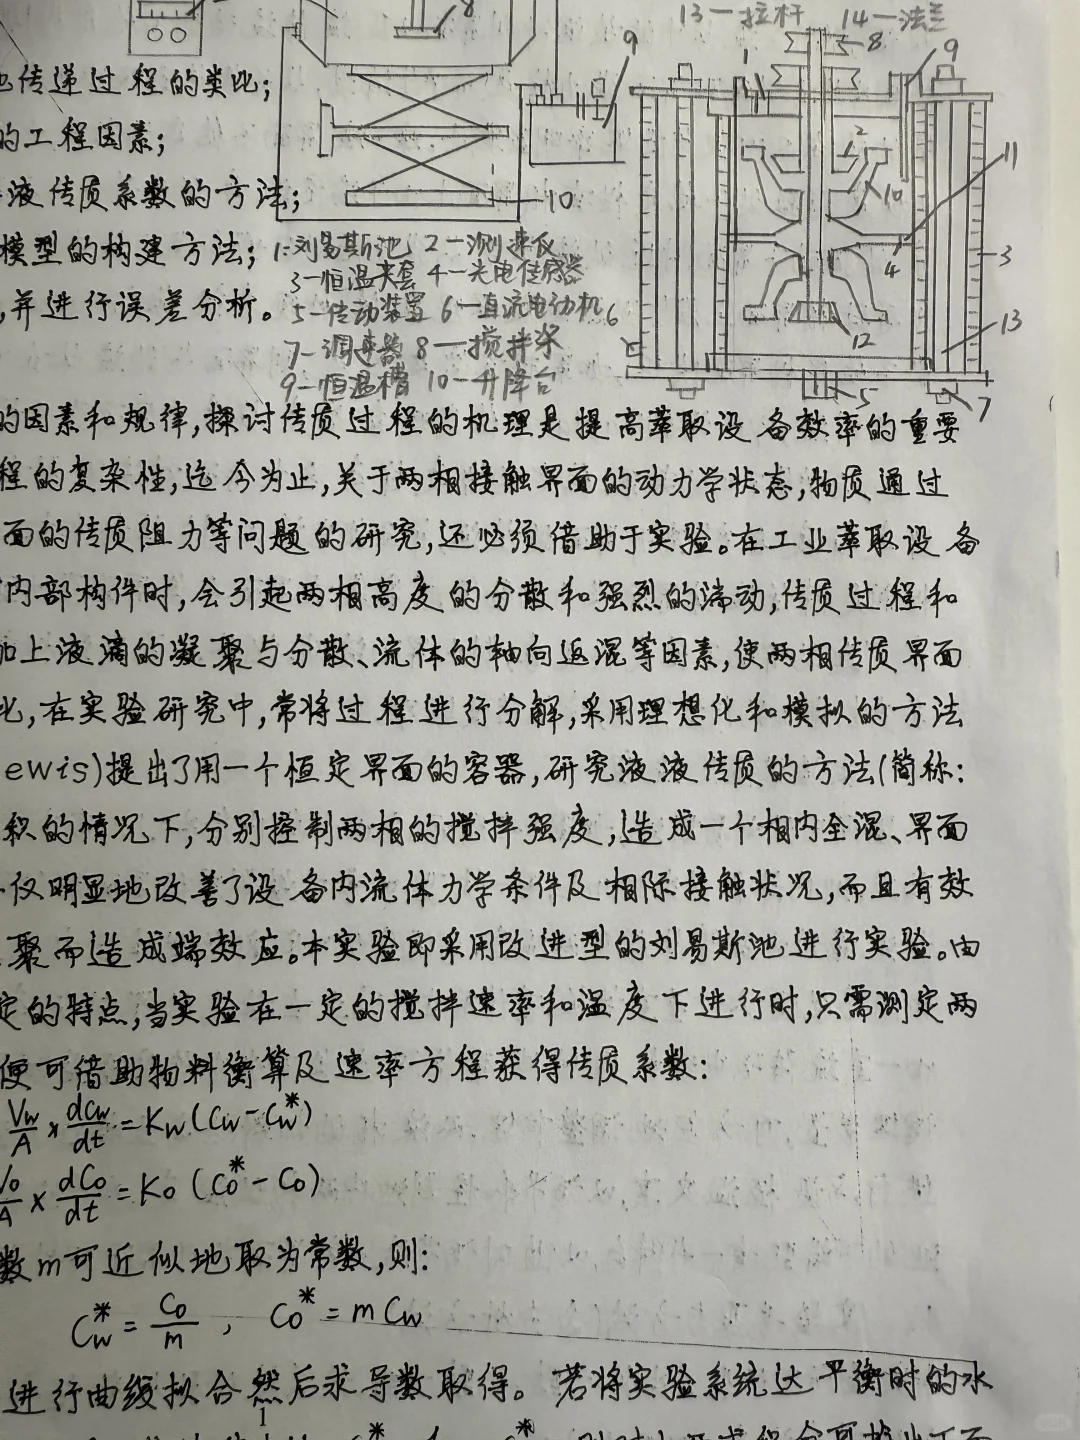 13—拉杆 14—法兰
8
8
9
9
也传递过程的类比;
1
的工程因素;
2
11
液传质系数的方法;
10
10
模型的构建方法;
1.刘易斯池 2—测速仪
4
3
3—恒温夹套 4—光电传感器
,并进行误差分析。
5—传动装置 6—直流电动机
6
13
12
7—调速器 8—搅拌桨
9—恒温槽 10—升降台
5
7
的因素和规律,探讨传质过程的机理是提高萃取设备效率的重要
程的复杂性,迄今为止,关于两相接触界面的动力学状态,物质通过
面的传质阻力等问题的研究,还必须借助于实验。在工业萃取设备
内部构件时,会引起两相高度的分散和强烈的湍动,传质过程和
加上液滴的凝聚与分散、流体的轴向返混等因素,使两相传质界面
比,在实验研究中,常将过程进行分解,采用理想化和模拟的方法
ewis)提出了用一个恒定界面的容器,研究液液传质的方法(简称:
积的情况下,分别控制两相的搅拌强度,造成一个相内全混、界面
仅明显地改善了设备内流体力学条件及相际接触状况,而且有效
聚而造成端效应。本实验即采用改进型的刘易斯池进行实验。由
定的特点,当实验在一定的搅拌速率和温度下进行时,只需测定两
便可借助物料衡算及速率方程获得传质系数:
Vw/A × dCw/dt = Kw(Cw - Cw*)
Vo/A × dCo/dt = Ko (Co* - Co)
数m可近似地取为常数,则:
Cw* = Co/m , Co* = m Cw
进行曲线拟合然后求导数取得。若将实验系统达平衡时的水
1